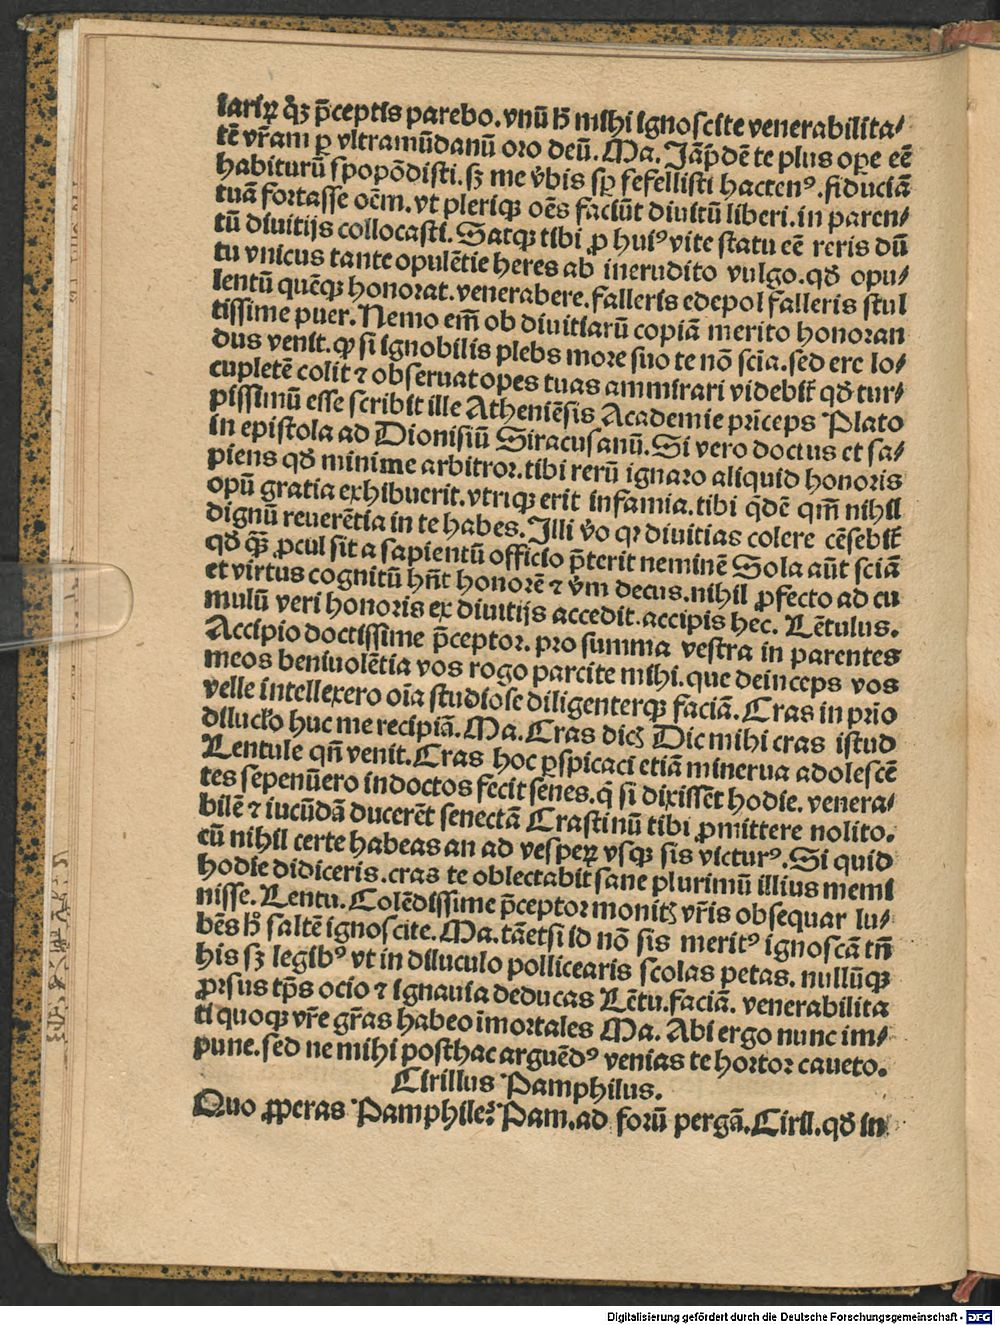 iariꝝ qͥꝫ p̄ceptis parebo. vnū hͦ mihi ignoscite venerabilita⸗
tē vr̄am ꝑ vltramūdanū oro deū. Ma. Jāp̄dē te plus oꝑe eē
habiturū spopōdisti. sꝫ me v̓bis sꝑ fefellisti hactenꝰ. fiduciā
tuā fortasse oēm. vt pleriqꝫ oēs faciūt diuitū liberi. in paren⸗
tū diuitijs collocasti. Satqꝫ tibi ꝓ huiꝰ vite statu eē reris dū
tu vnicus tante opulētie heres ab inerudito vulgo. qď opu⸗
lentū quēqꝫ honorat. venerabere. falleris edepol falleris stul
tissime puer. Nemo em̄ ob diuitiarū copiā merito honoran
dus venit. ꝙ si ignobilis plebs more suo te nō scīa. sed ere lo⸗
cupletē colit ⁊ obseruat opes tuas ammirari videbit̄ qď tur⸗
pissimū esse scribit ille Atheniēsis Academie prīceps Plato
in epistola ad Dionisiū Siracusanū. Si vero doctus et sa⸗
piens qď minime arbitror. tibi rerū ignaro aliquid honoris
opū gratia exhibuerit. vtriqꝫ erit infamia. tibi qͥdē qm̄ nihil
dignū reuerētia in te habes. Jlli v̓o qꝛ diuitias colere cēsebit̄
qď qͣꝫ ꝓcul sit a sapientū officio p̄terit neminē Sola aūt sciā
et virtus cognitū hn̄t honorē ⁊ v̓m decus. nihil ꝓfecto ad cu
mulū veri honoris ex diuitijs accedit. accipis hec. Lētulus.
Accipio doctissime p̄ceptor. pro summa vestra in parentes
meos beniuolētia vos rogo parcite mihi. que deinceps vos
velle intellexero oīa studiose diligenterqꝫ faciā. Cras in prīo
dilucl̓o huc me recipiā. Ma. Cras dicꝭ Dic mihi cras istud
Lentule qn̄ venit. Cras hoc ꝑspicaci etiā minerua adolescē
tes sepenūero indoctos fecit senes. qͥ si dixissēt hodie. venera⸗
bilē ⁊ iucūdā ducerēt senectā Crastinū tibi ꝓmittere nolito.
cū nihil certe habeas an ad vesperꝝ vsqꝫ sis victurꝰ. Si quid
hodie didiceris. cras te oblectabit sane plurimū illius memi
nisse. Lentu. Colēdissime p̄ceptor monitꝭ vr̄is obsequar lu⸗
bēs hͦ saltē ignoscite. Ma. tāetsi id nō sis meritꝰ ignoscā tn̄
his sꝫ legibꝰ vt in diluculo pollicearis scolas petas. nullūqꝫ
ꝓrsus tp̄s ocio ⁊ ignauia deducas Lētu. faciā. venerabilita
ti quoqꝫ vr̄e gr̄as habeo īmortales Ma. Abi ergo nunc im⸗
pune. sed ne mihi posthac arguēdꝰ venias te hortor caueto.
Cirillus Pamphilus.
Quo ꝓperas Pamphile? Pam. ad forū pergā. Ciril. qď in
Digitalisierung gefördert durch die Deutsche Forschungsgemeinschaft - DFG